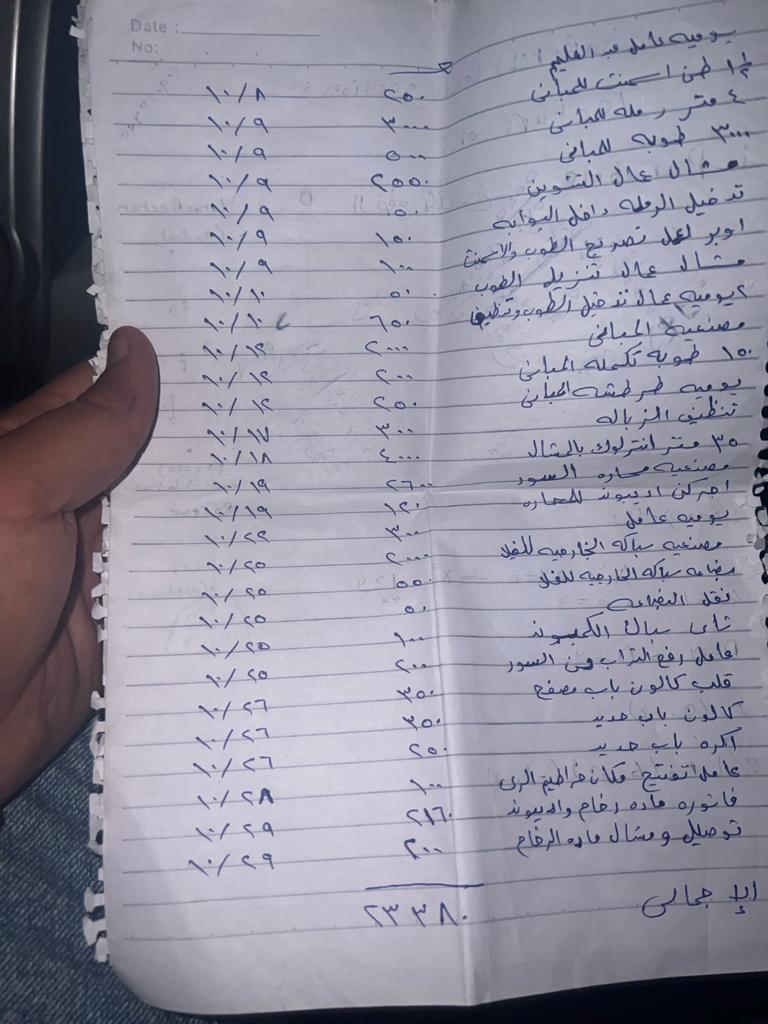 Date :
No:
يوميه عامل عبد العليم ٢٥٠ ١٠/٨
١½ طن اسمنت للمبانى ٣٠٠٠ ١٠/٩
٤ متر رمله للمبانى ٥٠٠ ١٠/٩
٣٠٠٠ طوبه للمبانى ٢٥٥٠ ١٠/٩
مشال عمال التشوين ٥٠ ١٠/٩
تدخيل الرمله داخل البوابه ١٥٠ ١٠/٩
اوبر لعمل تصريح الطوب والاسمنت ١٠٠ ١٠/٩
مشال عمال تنزيل الطوب ٥٠ ١٠/١٠
٢ يوميه عمال تدخيل الطوب وتنظيف ٦٥٠ ١٠/١٠
مصنعيه المبانى ٢٠٠٠ ١٠/١٢
١٥٠ طوبه تكمله المبانى ٢٠٠ ١٠/١٢
يوميه طرطشه المبانى ٢٥٠ ١٠/١٢
تنظيف الزباله ٣٠٠ ١٠/١٧
٣٥ متر انترلوك بالمشال ٤٠٠٠ ١٠/١٨
مصنعيه محاره السور ٢٦٠٠ ١٠/١٩
اجركن اديبوند للمحاره ١٢٠ ١٠/١٩
يوميه عامل ٣٠٠ ١٠/٢٢
مصنعيه سباكه الخارجيه للفيلا ٢٠٠٠ ١٠/٢٥
بضاعه سباكه الخارجيه للفيلا ٥٥٠ ١٠/٢٥
نقل البضاعه ٥٠ ١٠/٢٥
شاى سباك الكمبوند ١٠٠ ١٠/٢٥
عامل رفع التراب من السور ٢٠٠ ١٠/٢٥
قلب كالون باب مصفح ٣٥٠ ١٠/٢٦
كالون باب حديد ٣٥٠ ١٠/٢٦
اكره باب حديد ٢٥٠ ١٠/٢٦
عامل تفتيح مكان خراطيم الرى ١٠٠ ١٠/٢٨
فاتوره ماده رخام والاديبوند ٢١٦٠ ١٠/٢٩
توصليل ومشال ماده الرخام ٢٠٠ ١٠/٢٩
الإجمالى ٢٣٣٨٠